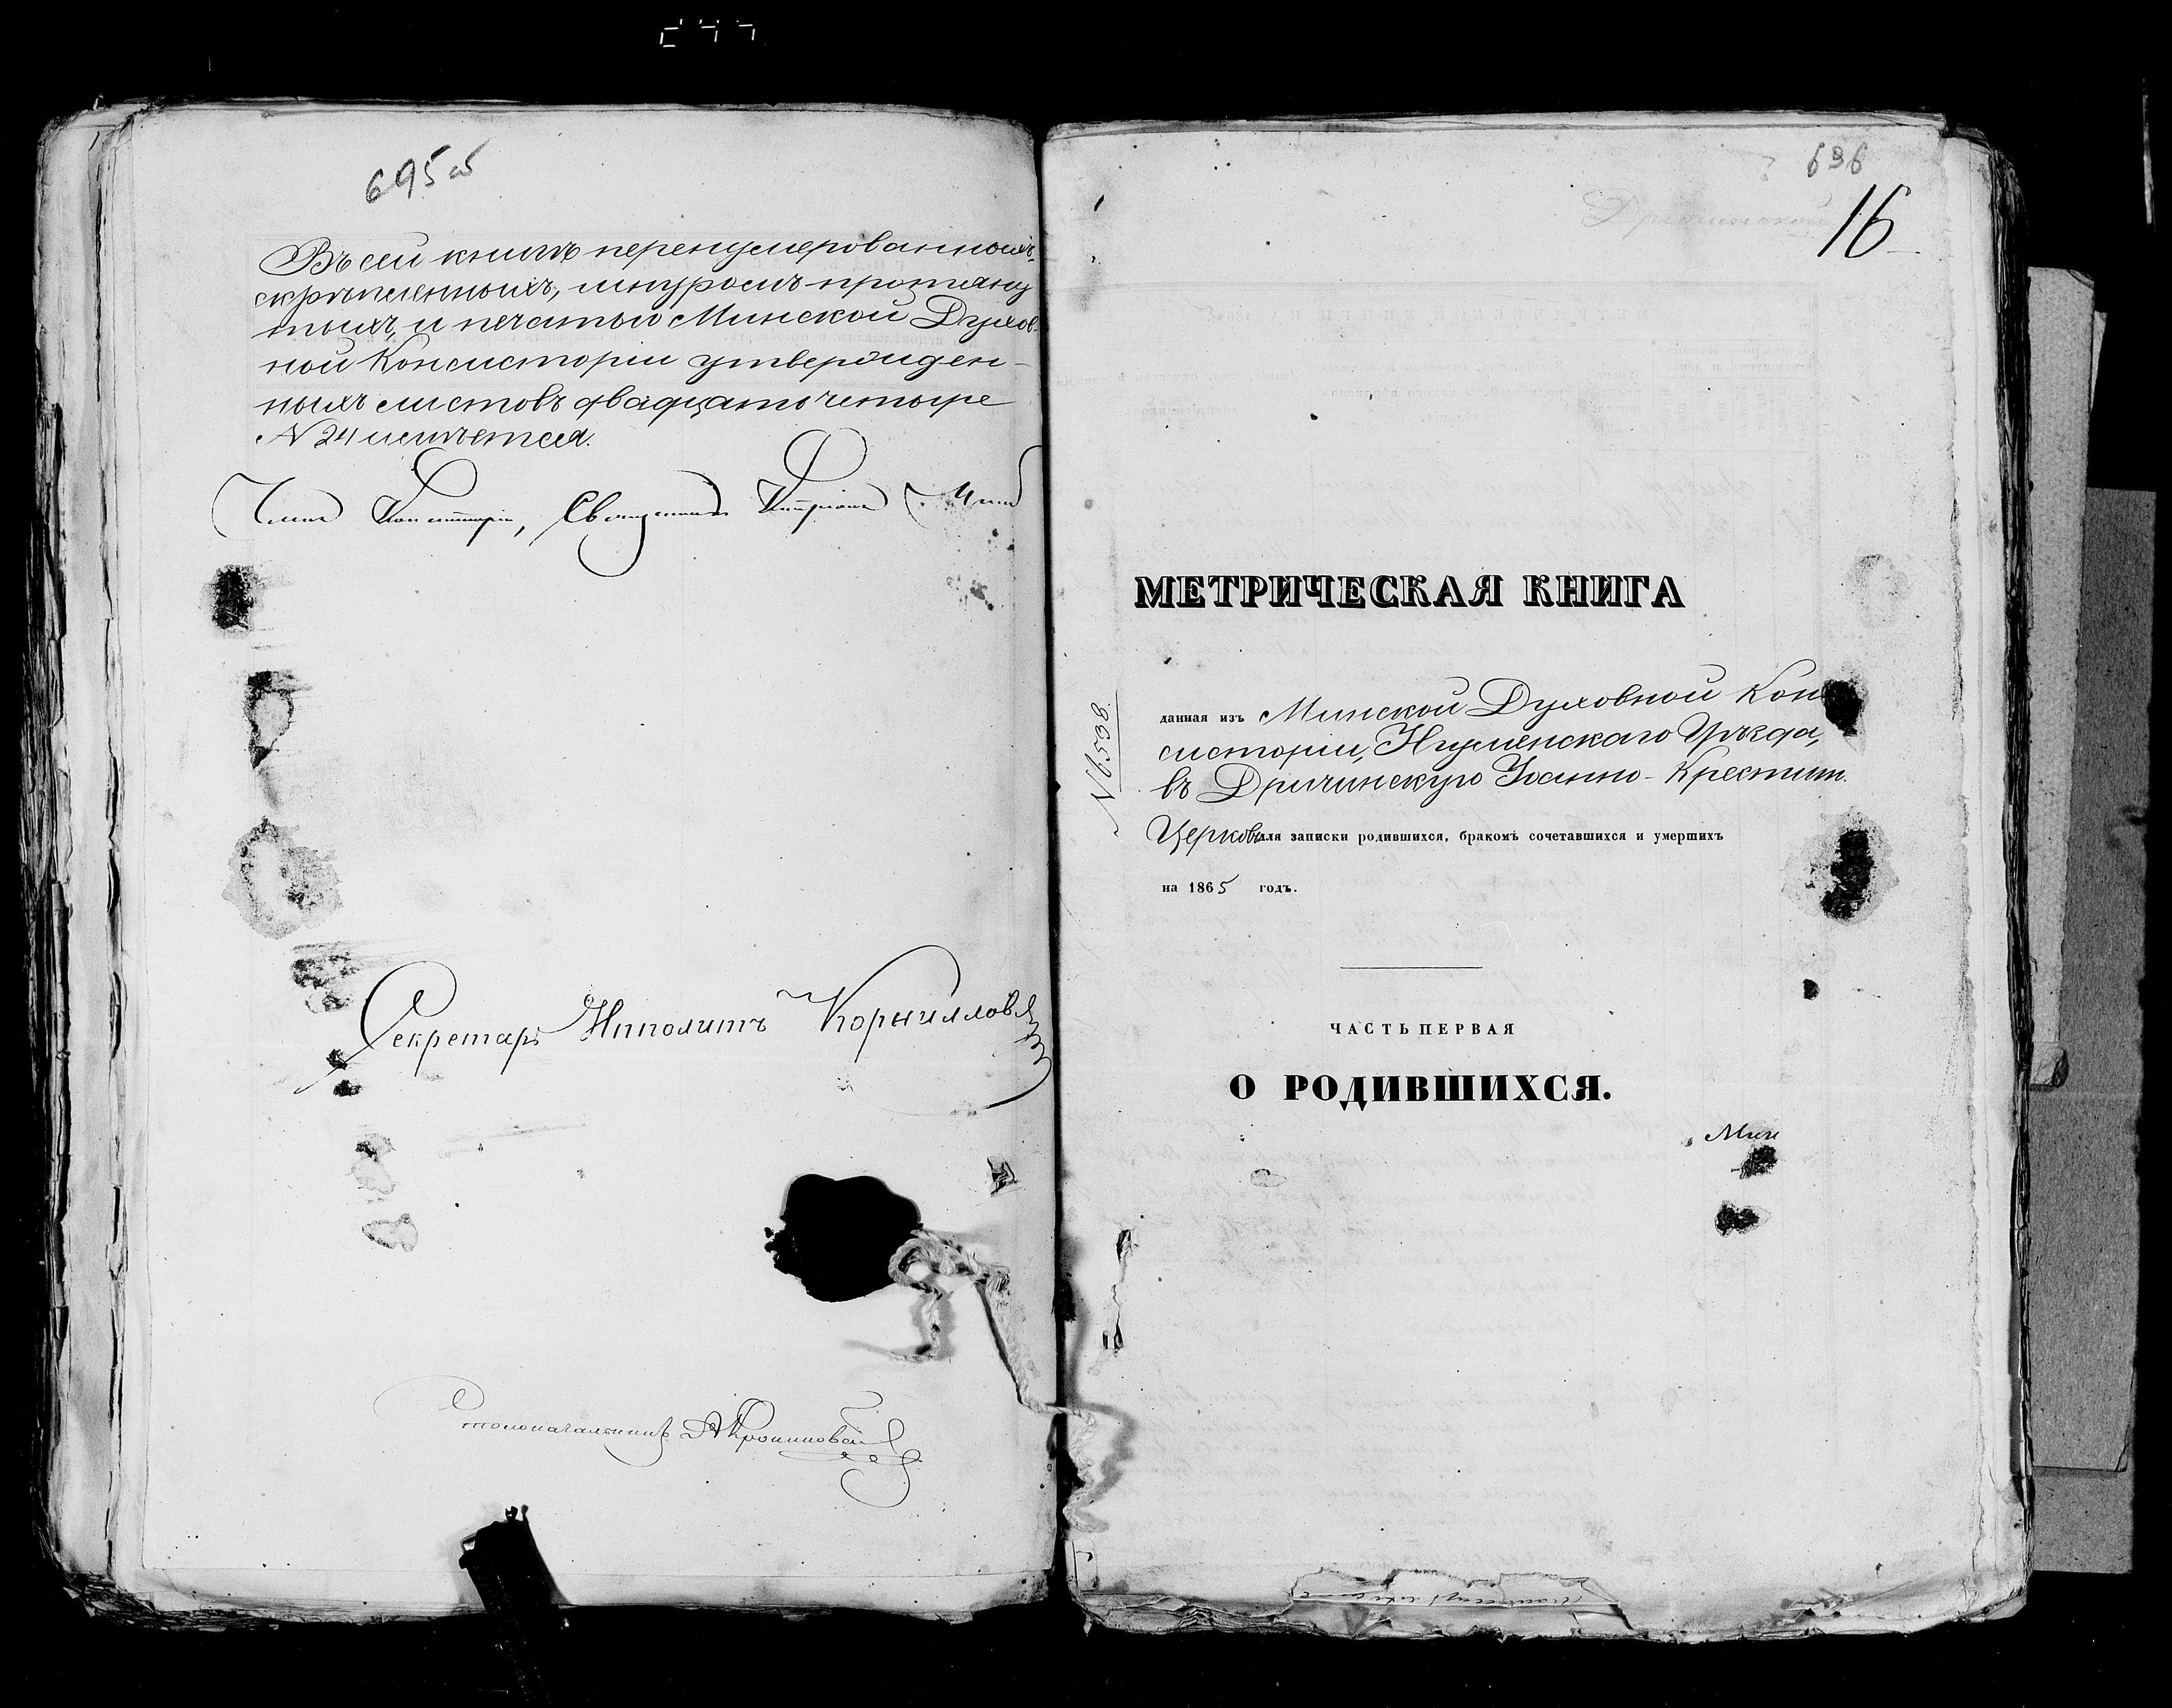 695 об
Въ сей книгѣ перенумерованныхъ,
скрѣпленныхъ, шнуромъ протяну
тыхъ, и печатью Минской Духов-
ной Консисторіи утвержден-
ныхъ листовъ двадцать четыре
№ 24 имѣется.
Членъ Консисторіи, Священникъ
Секретарь Ипполитъ Корнилловъ
Столоначальникъ
696
16
МЕТРИЧЕСКАЯ КНИГА
№ 6538.
данная изъ Минской Духовной Кон
систоріи, Игуменскаго Уѣзда,
въ Дричинскую Іоанно-Крестит.
Церковь для записки родившихся, бракомъ сочетавшихся и умершихъ
на 1865 годъ.
ЧАСТЬ ПЕРВАЯ
О РОДИВШИХСЯ.
Мин